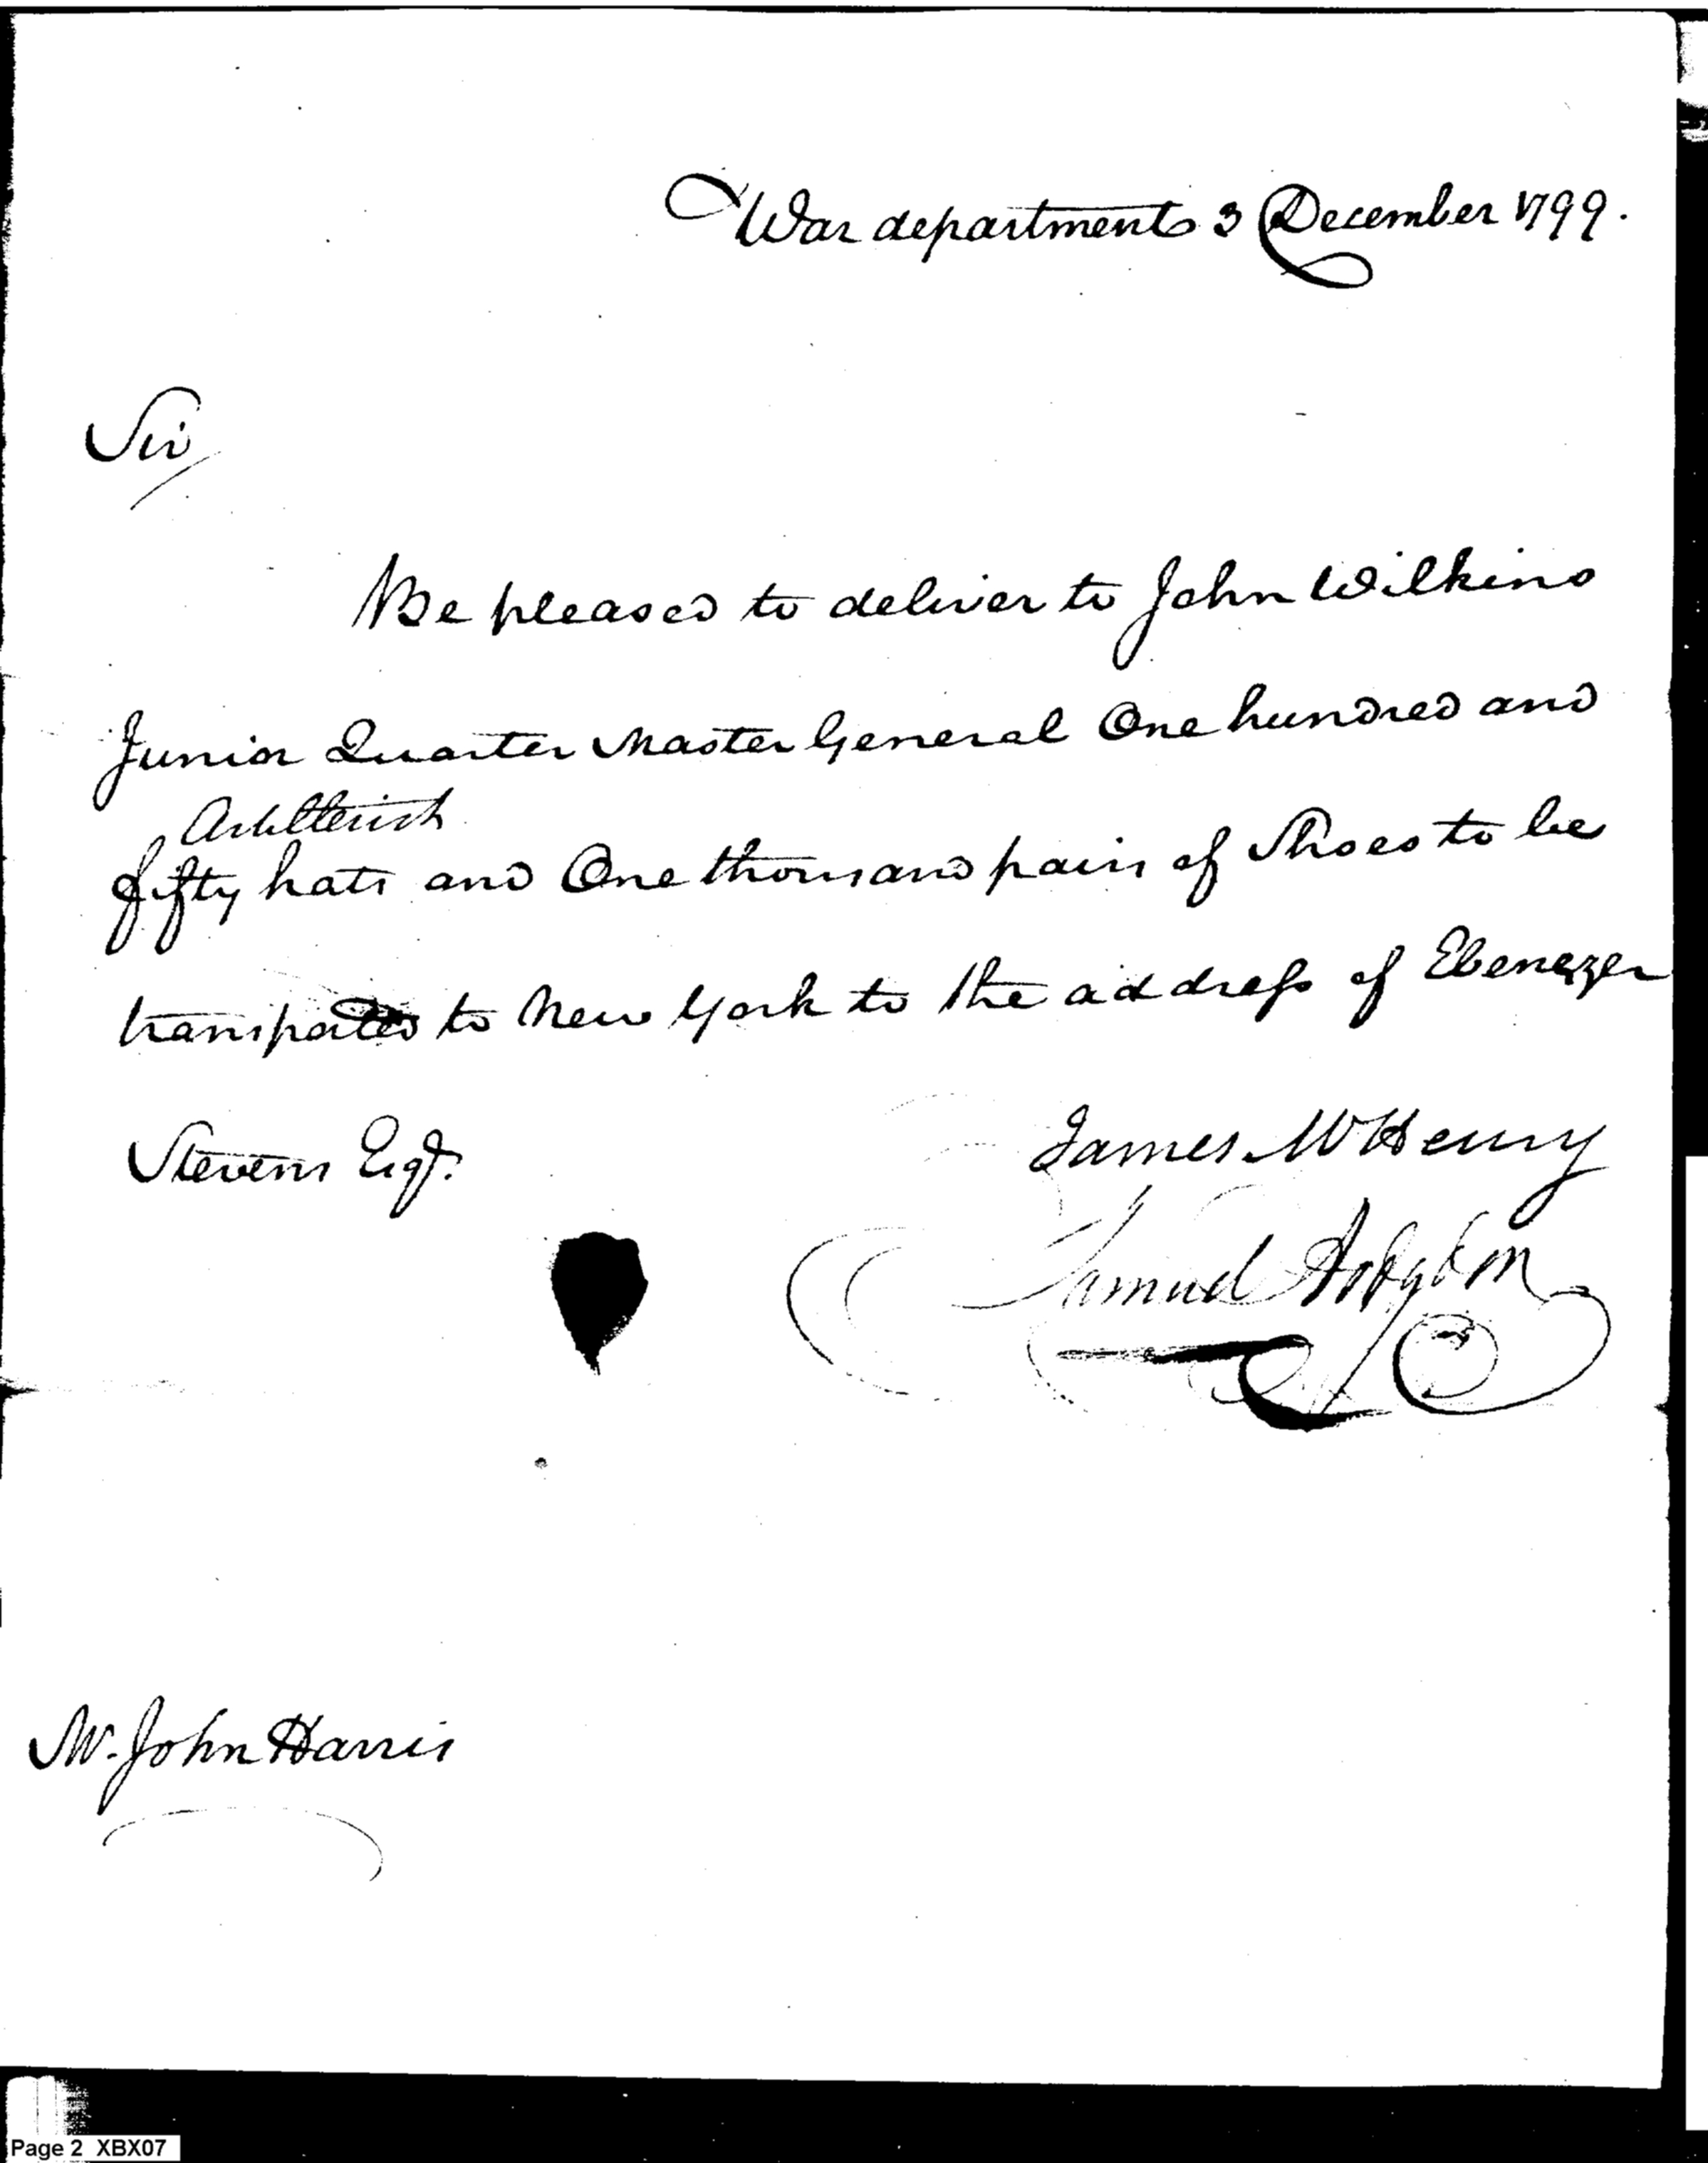 War department 3 December 1799.
Sir
Be pleased to deliver to John Wilkins
Junior Quarter Master General One hundred and
Artillerist
fifty hats and One thousand pairs of Shoes to be
transported to New York to the address of Ebenezer
Stevens Esqr.
James McHenry
Samuel Hodgdon
Mr. John Harris
Page 2 XBX07